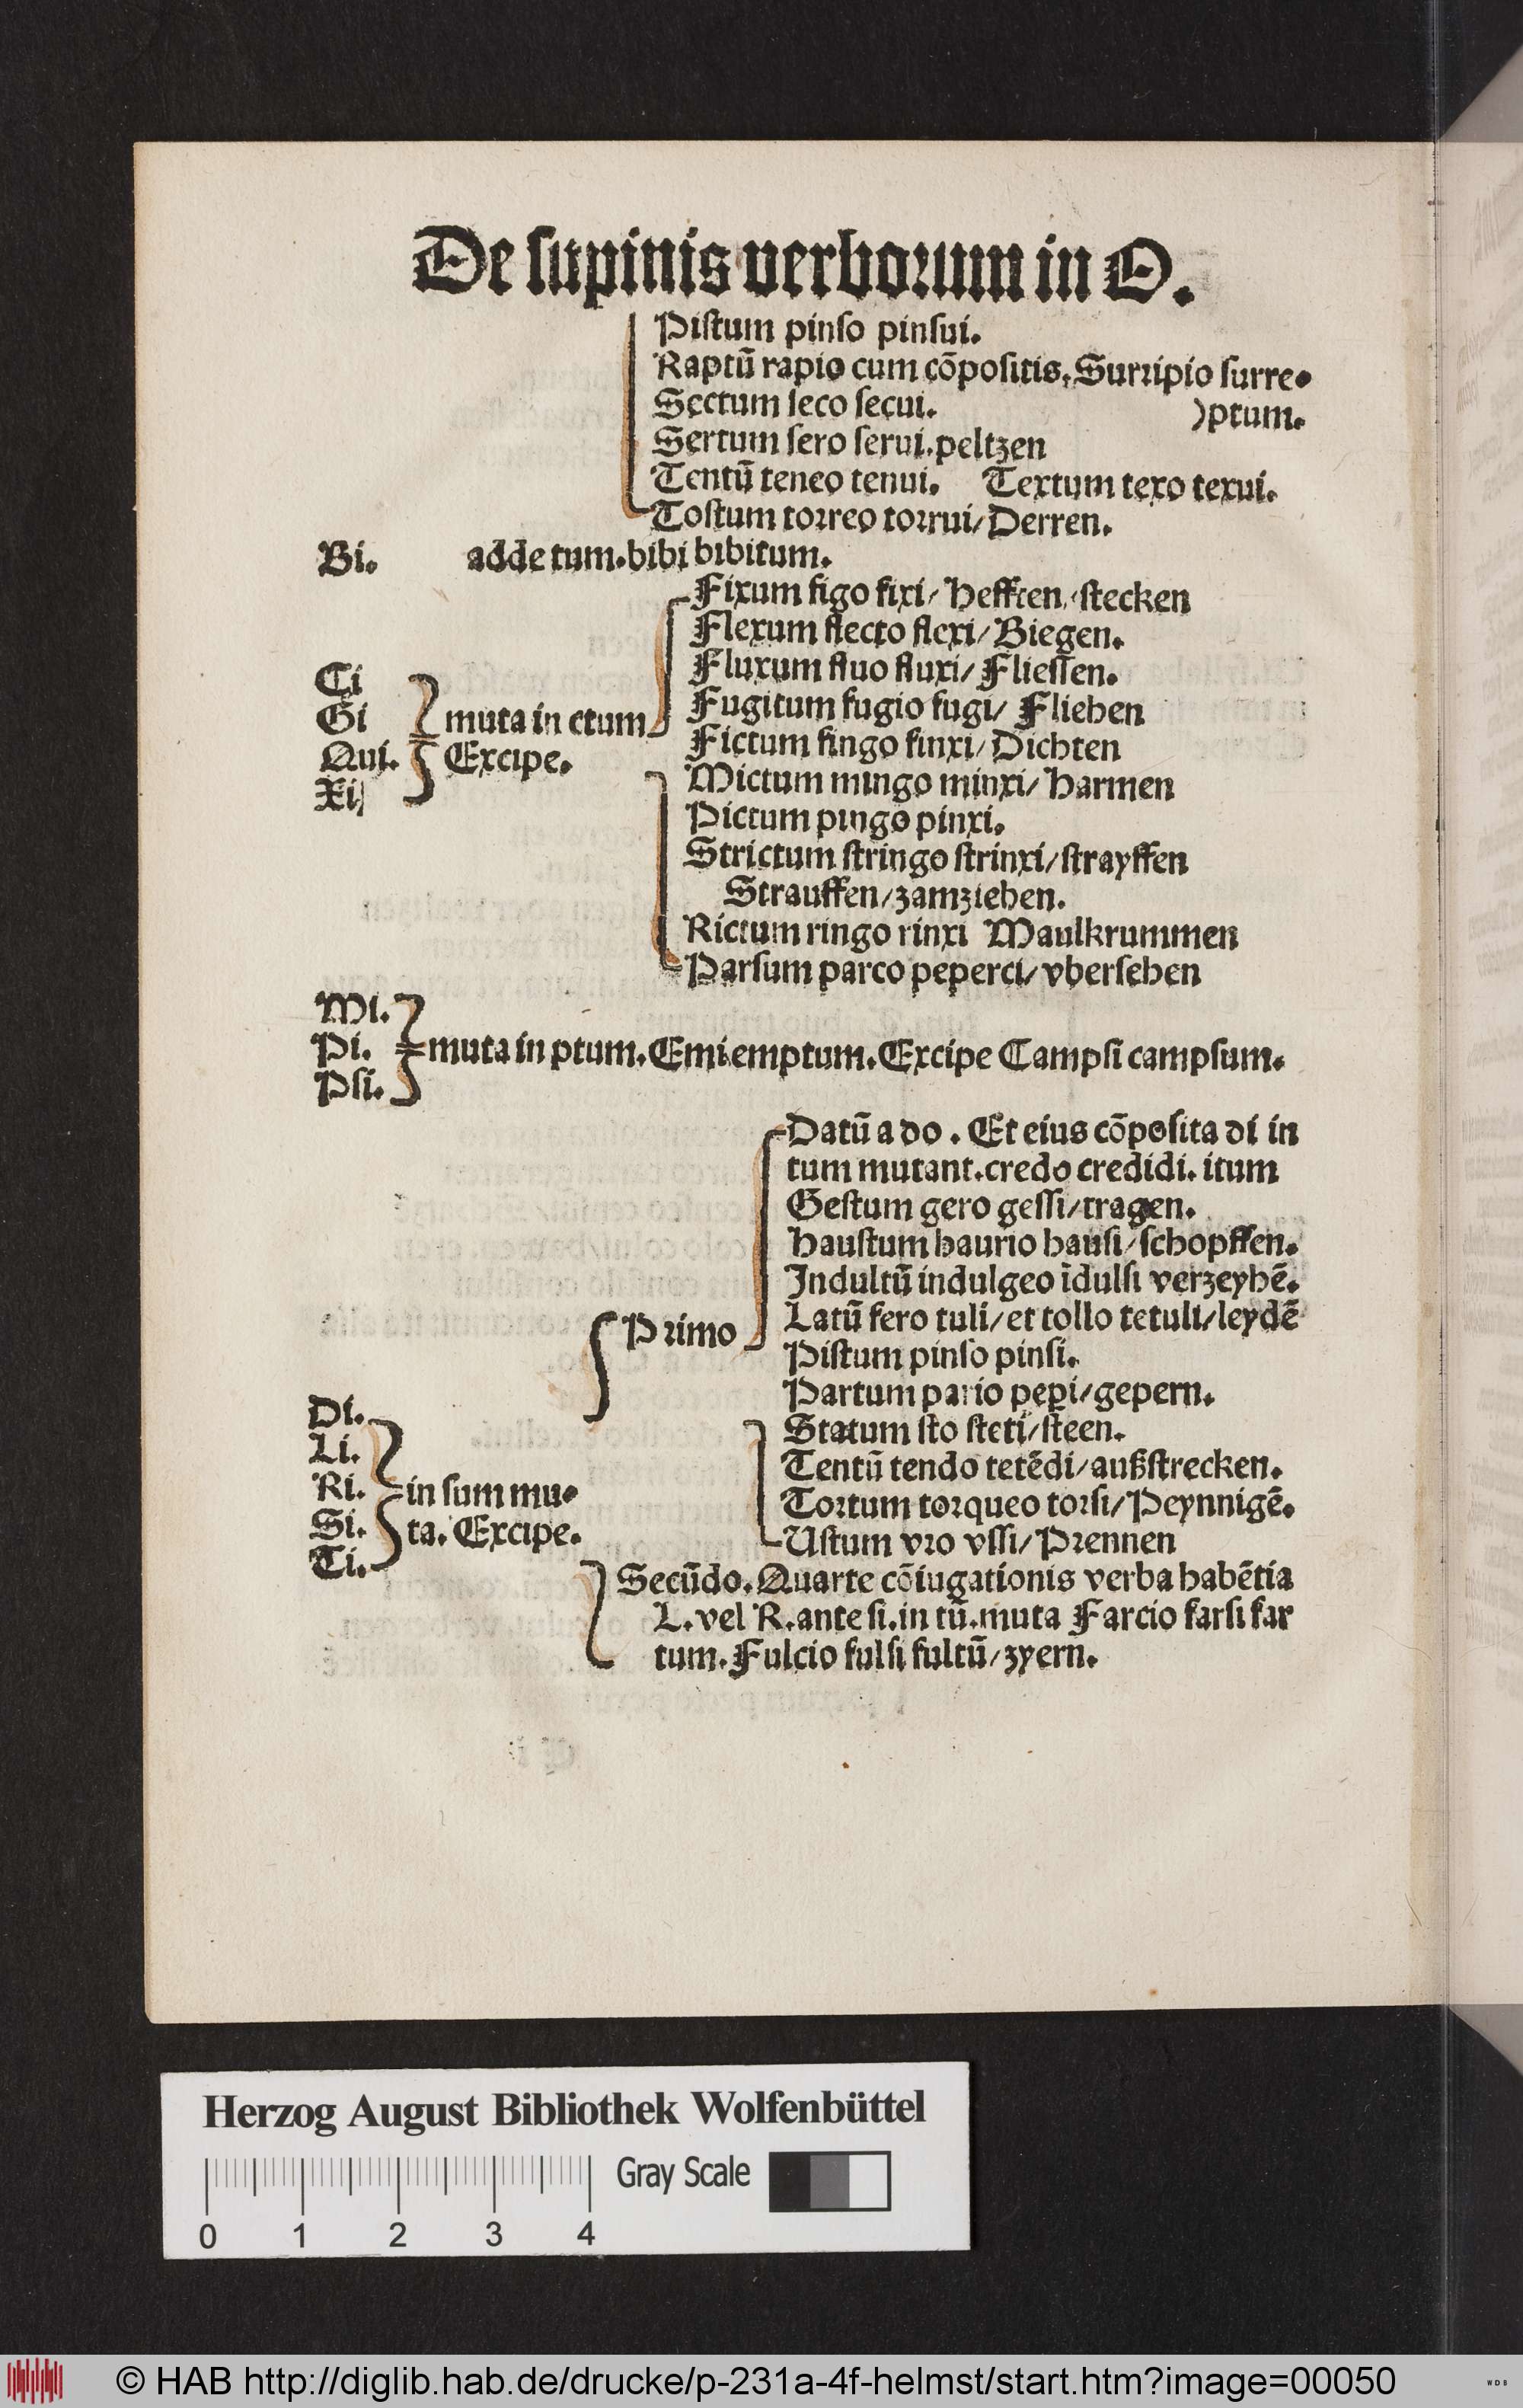 De ſupinis verborum in O.
Piſtum pinſo pinſui.
Raptū rapio cum cōpoſitis. Surripio ſurre⸗
Sectum ſeco ſecui. )ptum.
Sertum ſero ſerui. peltzen
Tentū teneo tenui. Textum texo texui.
Toſtum torreo torrui/ Derren.
Bi. adde tum. bibi bibitum.
Fixum figo fixi/ Hefften/ ſtecken
Flexum flecto flexi/ Biegen.
Fluxum fluo fluxi/ Flieſſen.
Fugitum fugio fugi/ Fliehen
Fictum fingo finxi/ Dichten
Mictum mingo minxi/ Harmen
Pictum pingo pinxi.
Strictum ſtringo ſtrinxi/ ſtrayffen
Strauffen/ zamziehen.
Rictum ringo rinxi Maulkrummen
Parſum parco peperci/ vberſehen
Ci
Gi
Qui.
Xi
muta in ctum
Excipe.
Mi.
Pi.
Pſi.
muta in ptum. Emi emptum. Excipe Campſi campſum.
Di.
Li.
Ri.
Si.
Ti.
in ſum mu⸗
ta. Excipe.
Primo
Datū a do. Et eius cōpoſita di in
tum mutant. credo credidi. itum
Geſtum gero geſſi/ tragen.
Hauſtum haurio hauſi/ ſchopffen.
Indultū indulgeo īdulſi verzeyhē.
Latū fero tuli/ et tollo tetuli/ leydē
Piſtum pinſo pinſi.
Partum pario pepi/ gepern.
Statum ſto ſteti/ ſteen.
Tentū tendo tetēdi/ außſtrecken.
Tortum torqueo torſi/ Peynnigē.
Uſtum vro vſſi/ Prennen
Secūdo. Quarte cōiugationis verba habētia
L. vel R. ante ſi. in tū. muta Farcio farſi far
tum. Fulcio fulſi fultū/ zyern.
Herzog August Bibliothek Wolfenbüttel
Gray Scale
0 1 2 3 4
© HAB http://diglib.hab.de/drucke/p-231a-4f-helmst/start.htm?image=00050
W D B